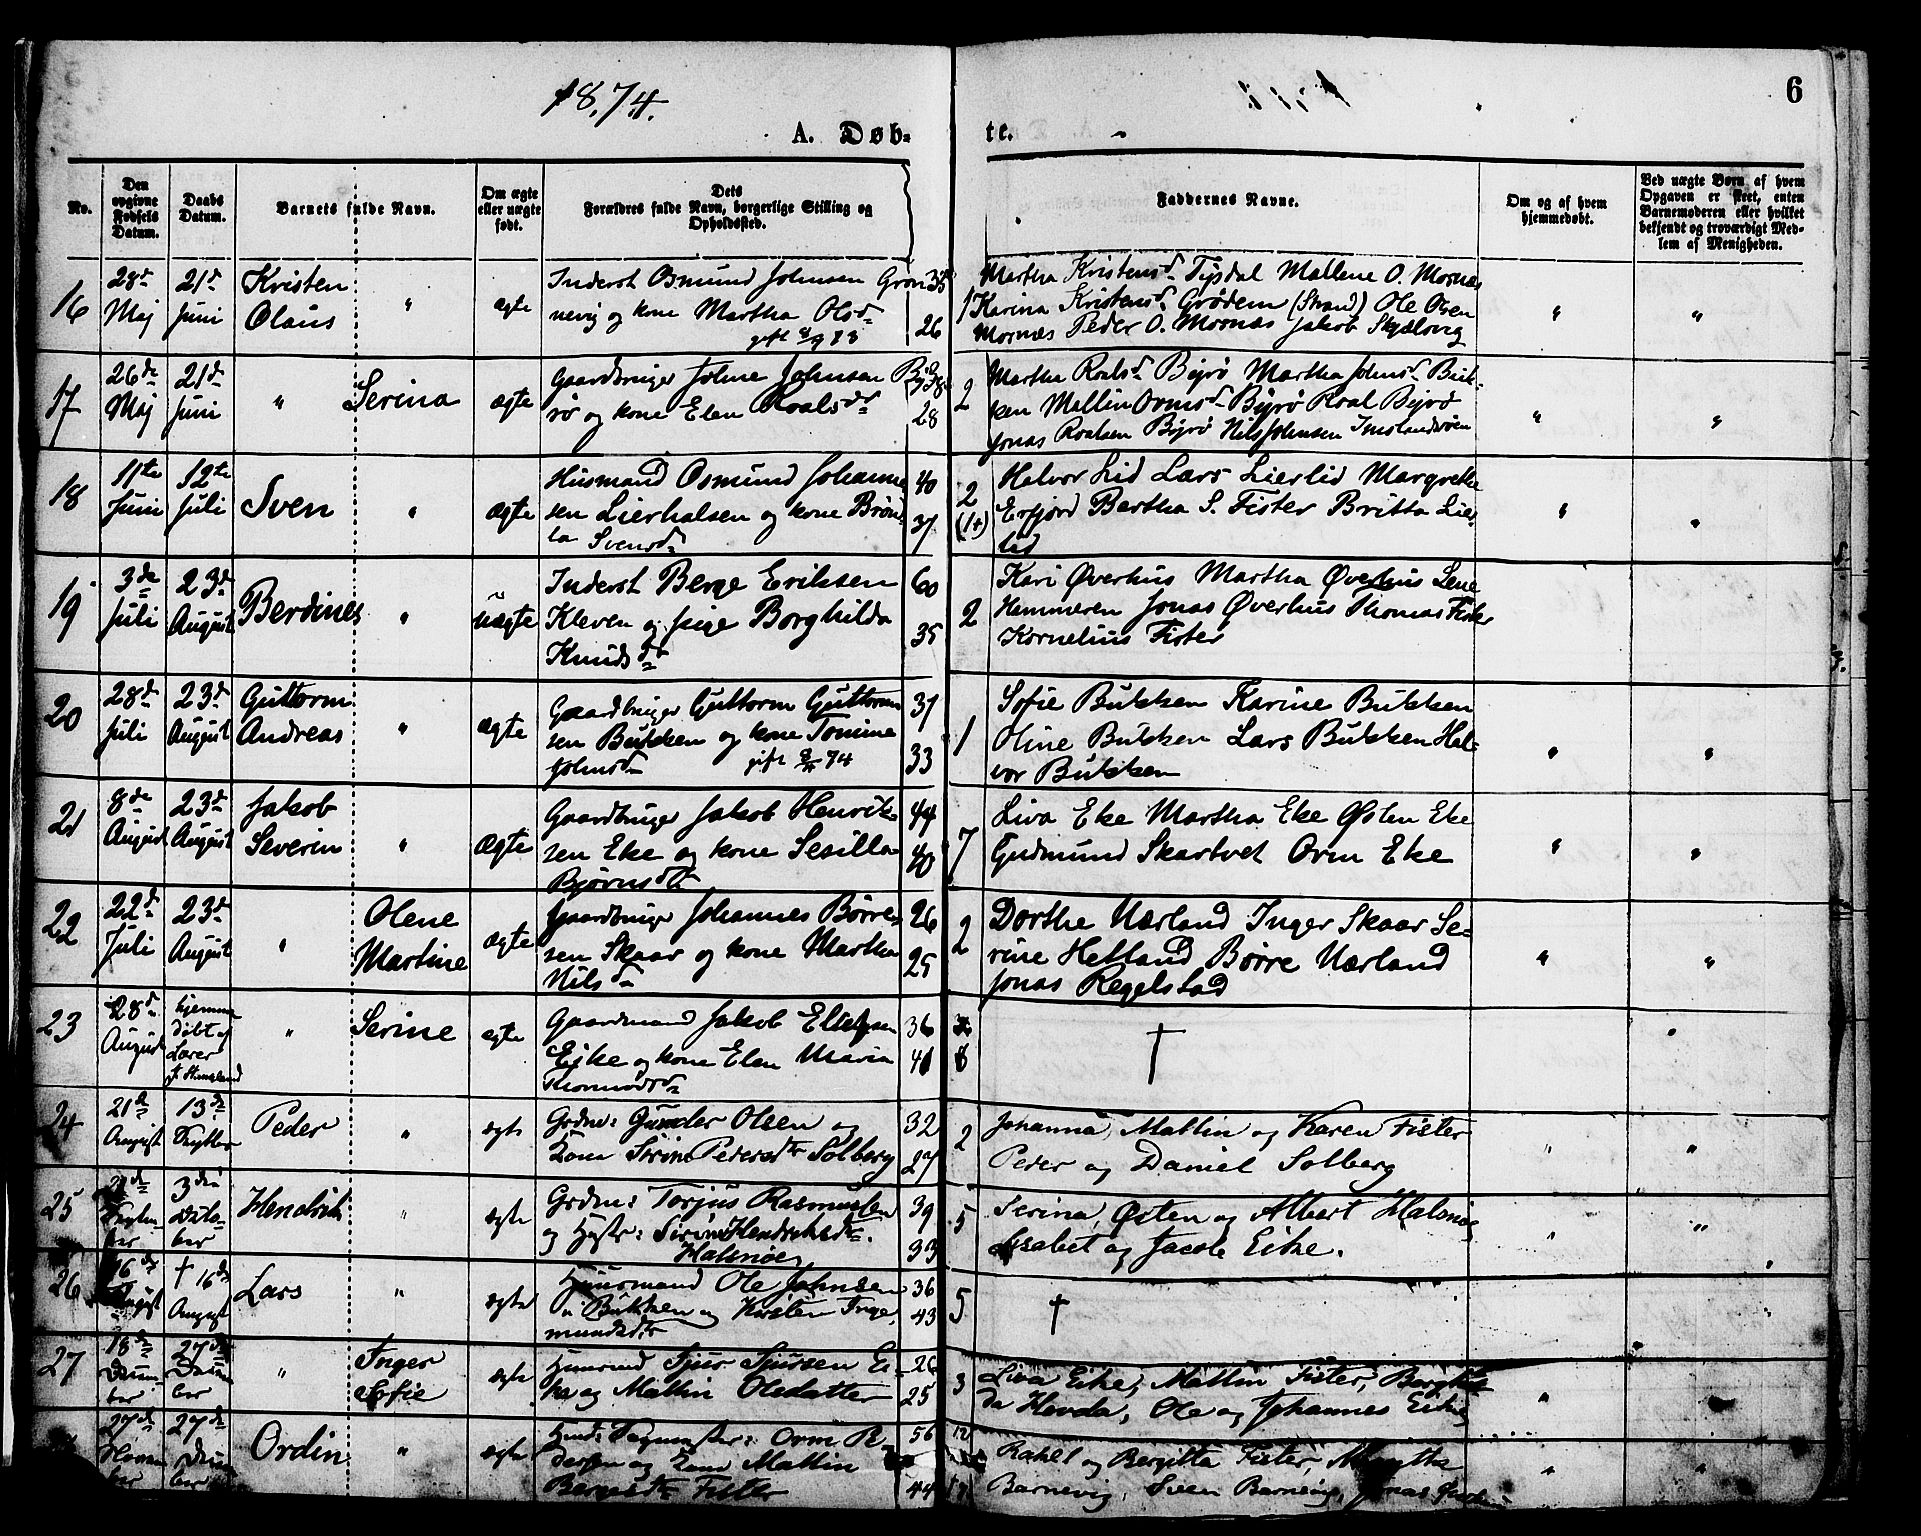 1874.
6
A. Døb-
te.
No.
Den opgivne Fødsels Datum.
Daabs Datum.
Barnets fulde Navn.
Om ægte eller uægte født.
Dets Forældres fulde Navn, borgerlige Stilling og Opholdssted.
Faddernes Navne.
Om og af hvem hjemmedøbt.
Ved uægte Børn af hvem Opgaven er sket, enten Barnemoderen eller hvilket bekjendt og troværdigt Medlem af Menigheden.
16 28d Maj 21d Juni Kristen Olaus " ægte
Inderst Osmund Johnsen Grøn 35
nevig og kone Martha Olsd 26
gift 8/9 73
1
Martha Kristensd Tysdal Mallene O. Mosnæs
Karina Kristensd Grødem (Strand) Ole Osen
Mosnæs Peder O. Mosnæs Jakob Skjælvig
" "
17 26de Maj 21de Juni " Serina ægte
Gaardbruger John Johnsen By 38
rø og kone Elen Roalsd 28
2
Martha Roalsd Byrø Martha Johnsd Buk-
ken Mallin Ormsd Byrø Roal Byrø
Jonas Roalsen Byrø Nils Johnsen Imslandsøen
" "
18 11te Juni 12te Juli Sven " ægte
Husmand Osmund Johanne 40
sen Lierhalsen og kone Brøn- 37
la Svensd
2 (1+)
Halvor Lid Lars Lierlid Margrethe
Erfjord Bertha S. Fister Britta Lier
lid
" "
19 3de Juli 23d August Berdines " uægte
Inderst Berge Eriksen 60
Kleven og pige Borghilda 35
Knudsd
2
Kari Øverhus Martha Øverhus Lene
Hammeren Jonas Øverhus Thomas Fister
Kornelius Fister
20 28d Juli 23d August Guttorm Andreas " ægte
Gaardbruger Guttorm Guttorm 37
sen Bukken og kone Tomine 33
Johnsd gift 74
1
Sofie Bukken Karine Bukken
Oline Bukken Lars Bukken Hal-
vor Bukken
" "
21 8de August 23d August Jakob Severin " ægte
Gaardbruger Jakob Henrik- 44
sen Eke og kone Sesilla 40
Bjørnsdt
7
Liva Eke Martha Eke Østen Eke
Gudmund Skartvet Orm Eke
" "
22 22d Juli 23d August " Olene Martine ægte
Gaardbruger Johannes Børre- 26
sen Skaar og kone Martha 25
Nilsd
2
Dorthe Nærland Inger Skaar Se-
rine Hetland Børre Nærland
Jonas Regelstad
" "
23 28d August hjemme døbt af Lærer " Serine ægte
Gaardmand Jakob Ellefsen 36
Eike og kone Elen Maria 41
Thormodsd
†
24 21d August 13de Septbr Peder " ægte
Grdm: Gunder Olsen og 32
Kone Sirine Pedersdtr Solberg 27
2
Johanna, Mallin og Karen Fister
Peder og Daniel Solberg
" "
25 21de Septem ber 3die Octo- ber Hendrik " ægte
Grdm: Torjus Rasmussen 39
og Hustr: Sirine Hendriksdtr. 33
Halsnøe
5
Serina, Østen og Albert Halsnøe
Lisabet og Jacob Eike.
" "
26 16de August † 16de August Lars " ægte
Huusmand Ole Johnsen 36
Bukken og Kirsten Inge 43
mundsdtr
5
†
27 18de Decem- ber 27de Decem ber " Inger Sofie ægte
Huusmd Sjur Sjursen Ei- 26
ke og Mallin Olsdatter 25
3
Liva Eike, Mallin Fister, Berghil
da Hovda, Ole og Johannes Eike
" "
27de Novem ber 27de Decem ber Ordin " ægte
Orm P. 56
dersen og Kone Mallin
Bergesdtr Fister 44
12
Rakel og Bergitta Fister, Margtha
Barnevig, Sven Barnevig, Jonas
" "